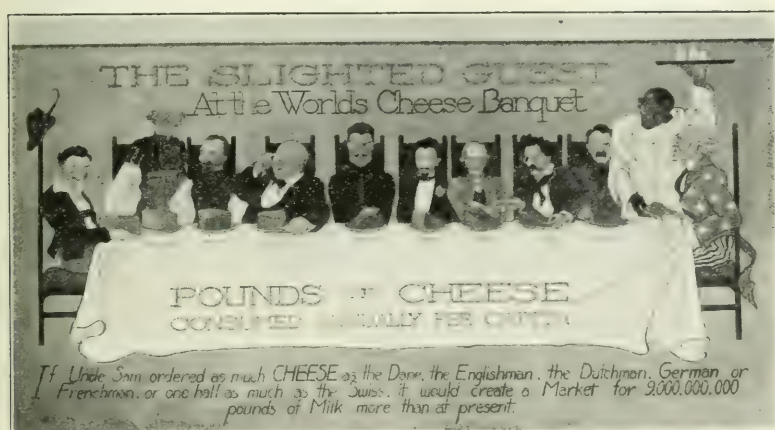 THE SLIGHTED GUEST
At the Worlds Cheese Banquet
POUNDS OF CHEESE
CONSUMED ANNUALLY PER CAPITA
If Uncle Sam ordered as much CHEESE as the Dane, the Englishman, the Dutchman, German or
Frenchman, or one half as much as the Swiss, it would create a Market for 9,000,000,000
pounds of Milk more than at present.